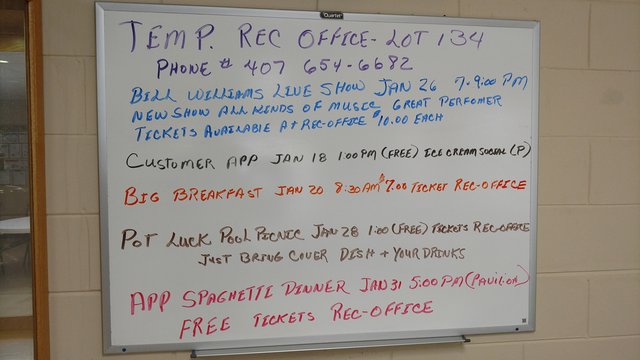 Quartet
TEMP. REC OFFICE - LOT 134
PHONE # 407 654-6682
BILL WILLIAMS LIVE SHOW JAN 26 7-9:00 PM
NEW SHOW ALL KINDS OF MUSIC GREAT PERFOMER
TICKETS AVAILABLE AT REC-OFFICE $10.00 EACH
CUSTOMER APP JAN 18 1:00 PM (FREE) ICE CREAM SOCIAL (P)
BIG BREAKFAST JAN 20 8:30 AM $7.00 TICKET REC-OFFICE
POT LUCK POOL PICNIC JAN 28 1:00 (FREE) TICKETS REC-OFFICE
JUST BRING COVER DISH + YOUR DRINKS
APP SPAGHETTI DINNER JAN 31 5:00 PM (PAVILION)
FREE TICKETS REC-OFFICE